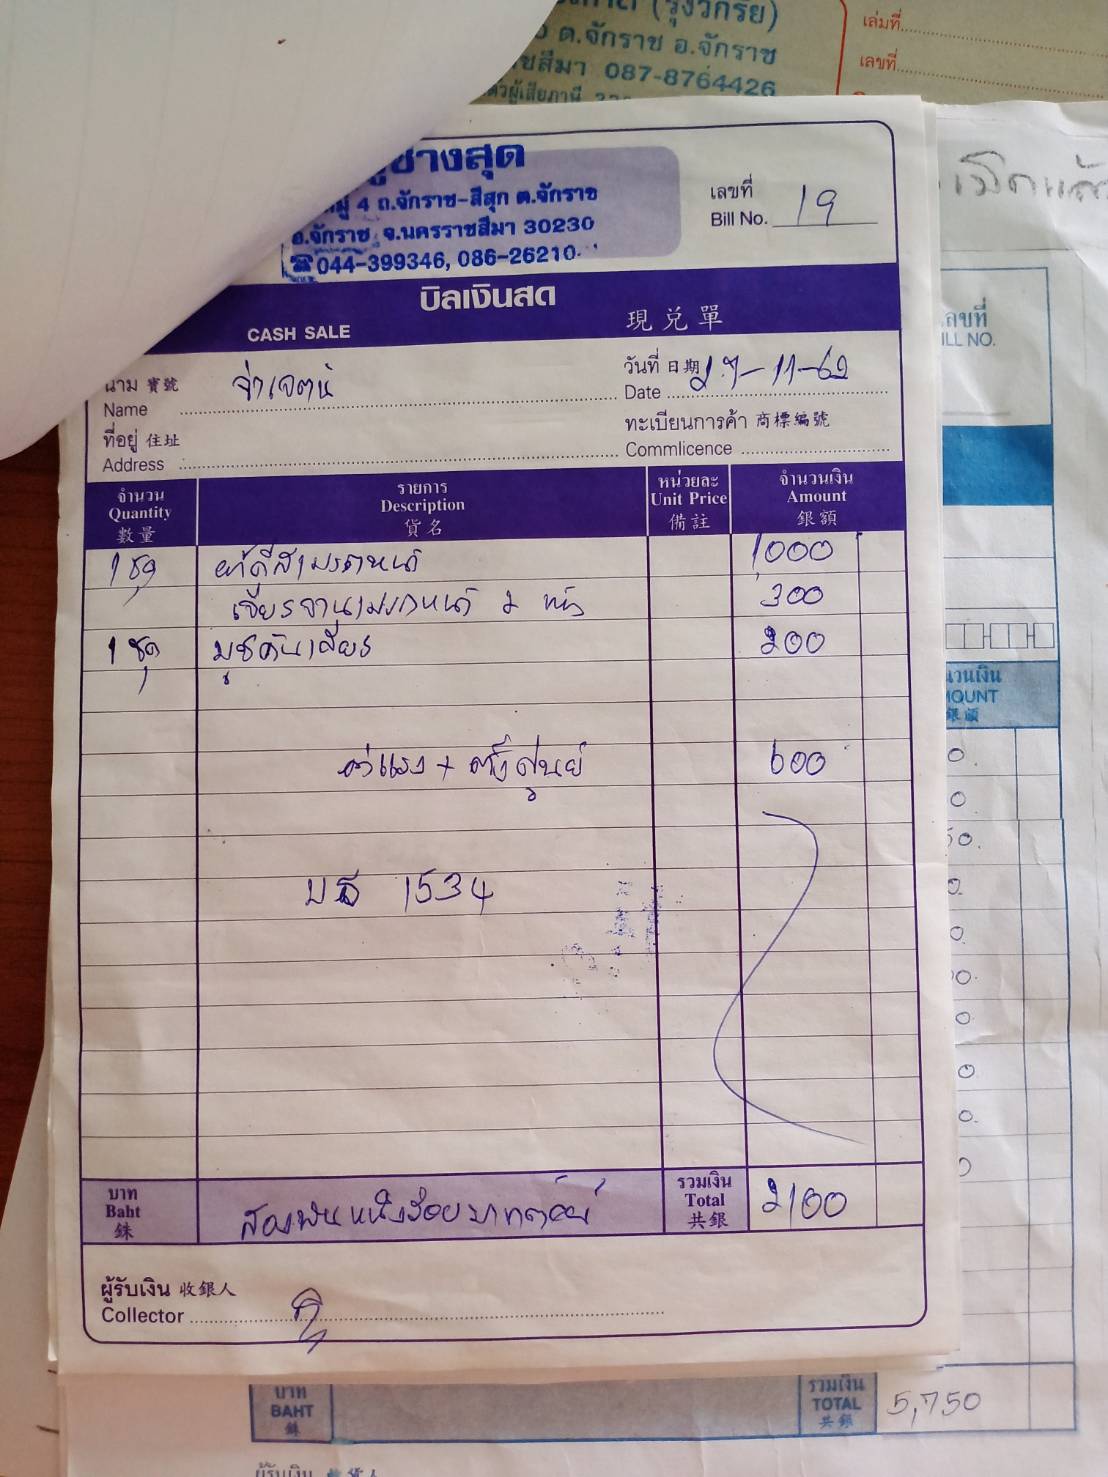 (รุ่งวิกรัย)
ต.จักราช อ.จักราช
087-8764426
เล่มที่
เลขที่
ช่างสุด
4 ถ.จักราช-สีสุก ต.จักราช
อ.จักราช จ.นครราชสีมา 30230
☎044-399346, 086-26210
เลขที่
Bill No. 19
บิลเงินสด
CASH SALE 現兑單
นาม 寶號
Name จ่าเจตน์
วันที่ 日期 27-11-62
Date
ที่อยู่ 住址
Address
ทะเบียนการค้า 商標編號
Commlicence
จำนวน รายการ หน่วยละ จำนวนเงิน
Quantity Description Unit Price Amount
數量 貨名 備註 銀額
1 ชุด ผ้าดิสเบรคหน้า 1000
เจียรจานเบรคหน้า 2 300
1 ชุด บูชคันเกียร 200
ค่าแรง + ตั้งศูนย์ 600
บธ 1534
บาท
Baht สองพันหนึ่งร้อยบาทถ้วน
銖
รวมเงิน
Total 2100
共銀
ผู้รับเงิน 收銀人
Collector
เลขที่
BILL NO.
AMOUNT
บาท
BAHT
銖
รวมเงิน
TOTAL 5,750
共銀